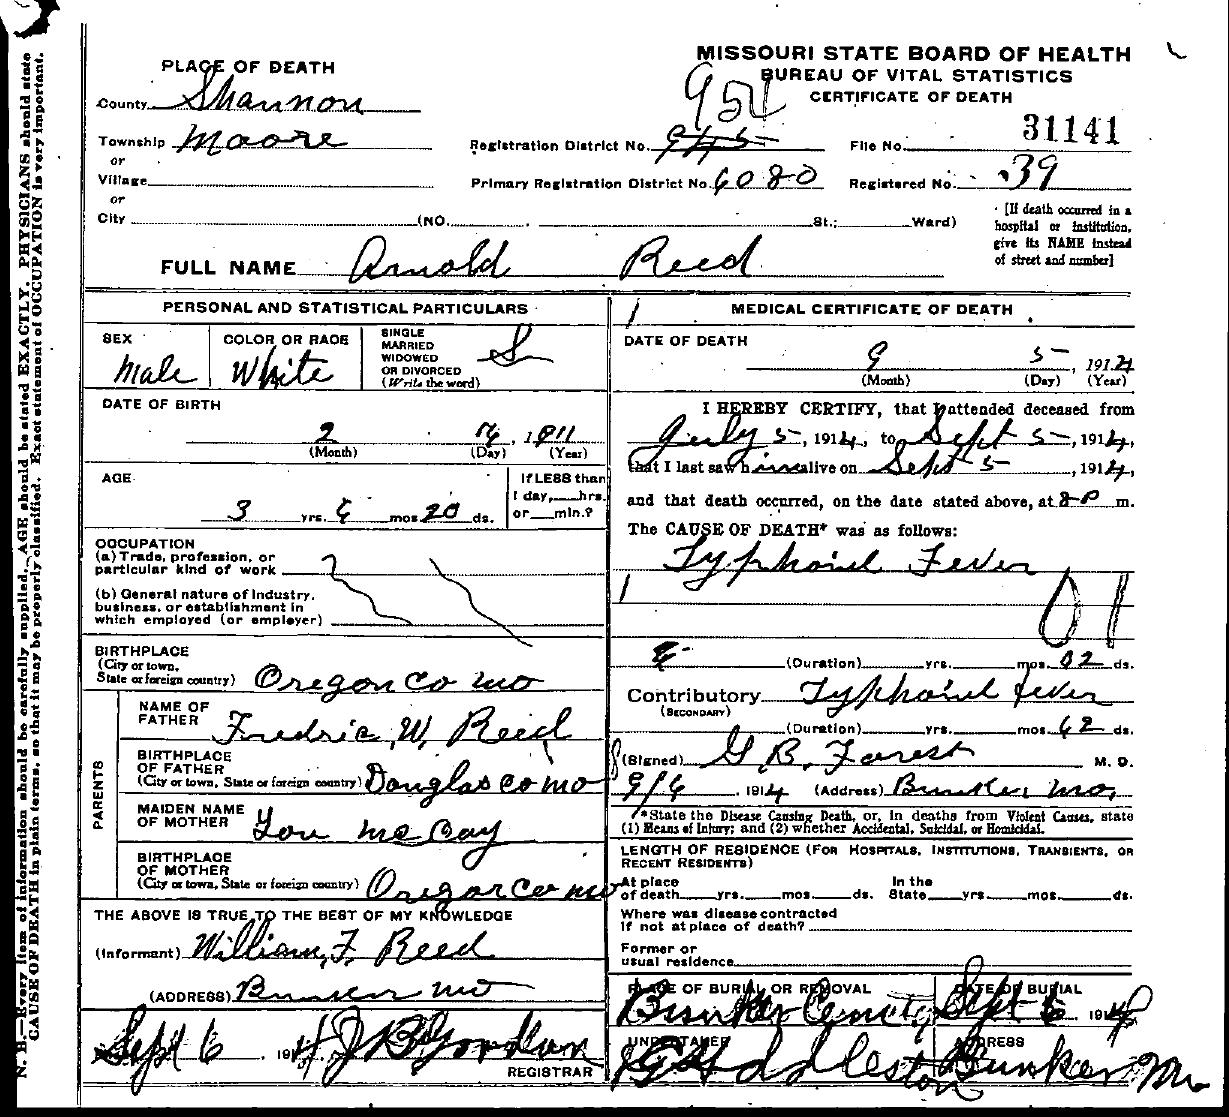 MISSOURI STATE BOARD OF HEALTH
BUREAU OF VITAL STATISTICS
CERTIFICATE OF DEATH
PLACE OF DEATH
County Shannon
Township Moore
or
Village
or
City (NO. St.; Ward)
954
Registration District No. 945
File No. 31141
Primary Registration District No. 6080
Registered No. 39
[If death occurred in a
hospital or institution,
give its NAME instead
of street and number]
FULL NAME Arnold Reed
PERSONAL AND STATISTICAL PARTICULARS
SEX
Male
COLOR OR RACE
White
SINGLE
MARRIED
WIDOWED
OR DIVORCED
(Write the word)
S
DATE OF BIRTH
2 1911
(Month) (Day) (Year)
AGE
3 yrs. 6 mos. 20 ds.
If LESS than
1 day, hrs.
or min.?
OCCUPATION
(a) Trade, profession, or
particular kind of work
(b) General nature of Industry,
business, or establishment in
which employed (or employer)
BIRTHPLACE
(City or town,
State or foreign country) Oregon Co Mo
PARENTS
NAME OF
FATHER Fredric W. Reed
BIRTHPLACE
OF FATHER
(City or town, State or foreign country) Douglas Co Mo
MAIDEN NAME
OF MOTHER Lou
BIRTHPLACE
OF MOTHER
(City or town, State or foreign country) Oregon Co Mo
THE ABOVE IS TRUE TO THE BEST OF MY KNOWLEDGE
(Informant) William F. Reed
(ADDRESS) Bunker Mo
Sept 6, 1914 J B Gordon
REGISTRAR
MEDICAL CERTIFICATE OF DEATH
DATE OF DEATH
9 5, 1914
(Month) (Day) (Year)
I HEREBY CERTIFY, that I attended deceased from
July 5, 1914, to Sept 5, 1914,
that I last saw him alive on Sept 5, 1914,
and that death occurred, on the date stated above, at 8 P m.
The CAUSE OF DEATH* was as follows:
Typhoid Fever
01
(Duration) yrs. mos. 02 ds.
Contributory Typhoid fever
(SECONDARY)
(Duration) yrs. mos. 62 ds.
(Signed) G. B. Forest M. D.
9/6, 1914 (Address) Bunker Mo.
*State the Disease Causing Death, or, in deaths from Violent Causes, state
(1) Means of Injury; and (2) whether Accidental, Suicidal, or Homicidal.
LENGTH OF RESIDENCE (FOR HOSPITALS, INSTITUTIONS, TRANSIENTS, OR
RECENT RESIDENTS)
At place
of death yrs. mos. ds.
In the
State yrs. mos. ds.
Where was disease contracted
if not at place of death?
Former or
usual residence
PLACE OF BURIAL OR REMOVAL
Bunker Cemetery
DATE OF BURIAL
Sept 6 1914
UNDERTAKER
G Huddleston
ADDRESS
Bunker Mo
N. B.—Every item of information should be carefully supplied. AGE should be stated EXACTLY. PHYSICIANS should state
CAUSE OF DEATH in plain terms, so that it may be properly classified. Exact statement of OCCUPATION is very important.